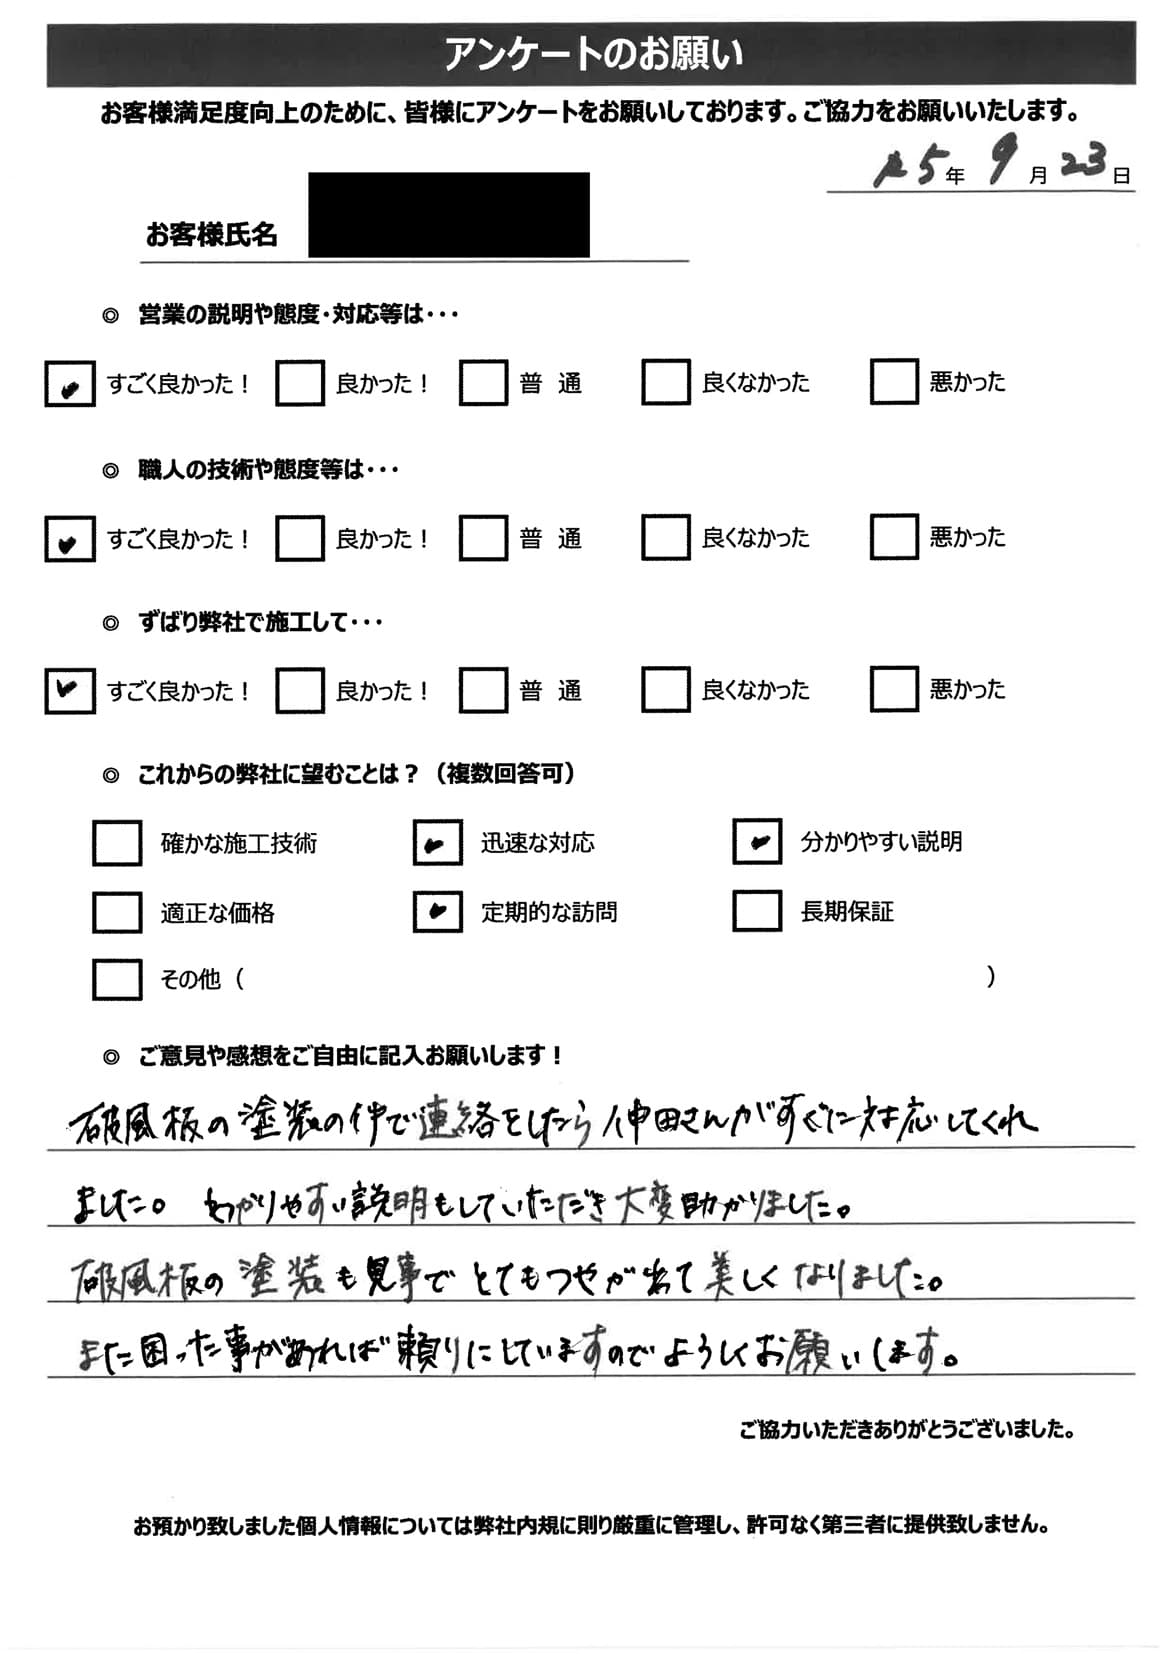 アンケートのお願い
お客様満足度向上のために、皆様にアンケートをお願いしております。ご協力をお願いいたします。
5年 9月 23日
お客様氏名
◎ 営業の説明や態度・対応等は・・・
すごく良かった！ 良かった！ 普 通 良くなかった 悪かった
◎ 職人の技術や態度等は・・・
すごく良かった！ 良かった！ 普 通 良くなかった 悪かった
◎ ずばり弊社で施工して・・・
すごく良かった！ 良かった！ 普 通 良くなかった 悪かった
◎ これからの弊社に望むことは？（複数回答可）
確かな施工技術 迅速な対応 分かりやすい説明
適正な価格 定期的な訪問 長期保証
その他（ ）
◎ ご意見や感想をご自由に記入お願いします！
破風板の塗装の件で連絡をしたら仲田さんがすぐに対応してくれ
ました。 わかりやすい説明もしていただき大変助かりました。
破風板の塗装も見事でとてもつやが出て美しくなりました。
また困った事があれば頼りにしていますのでよろしくお願いします。
ご協力いただきありがとうございました。
お預かり致しました個人情報については弊社内規に則り厳重に管理し、許可なく第三者に提供致しません。